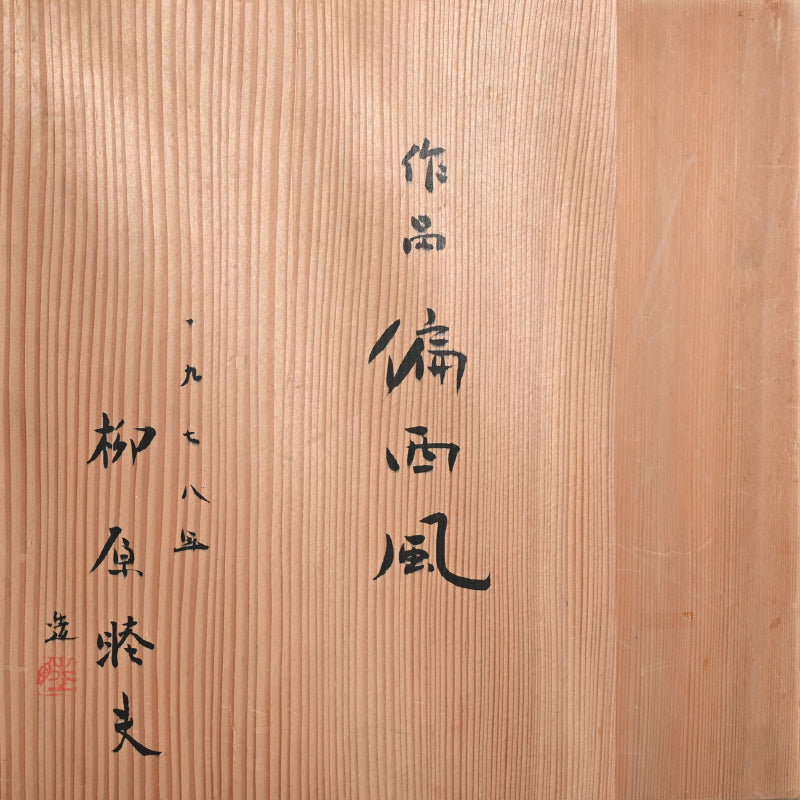 作品 偏西風
一九七八年
柳原睦夫
造